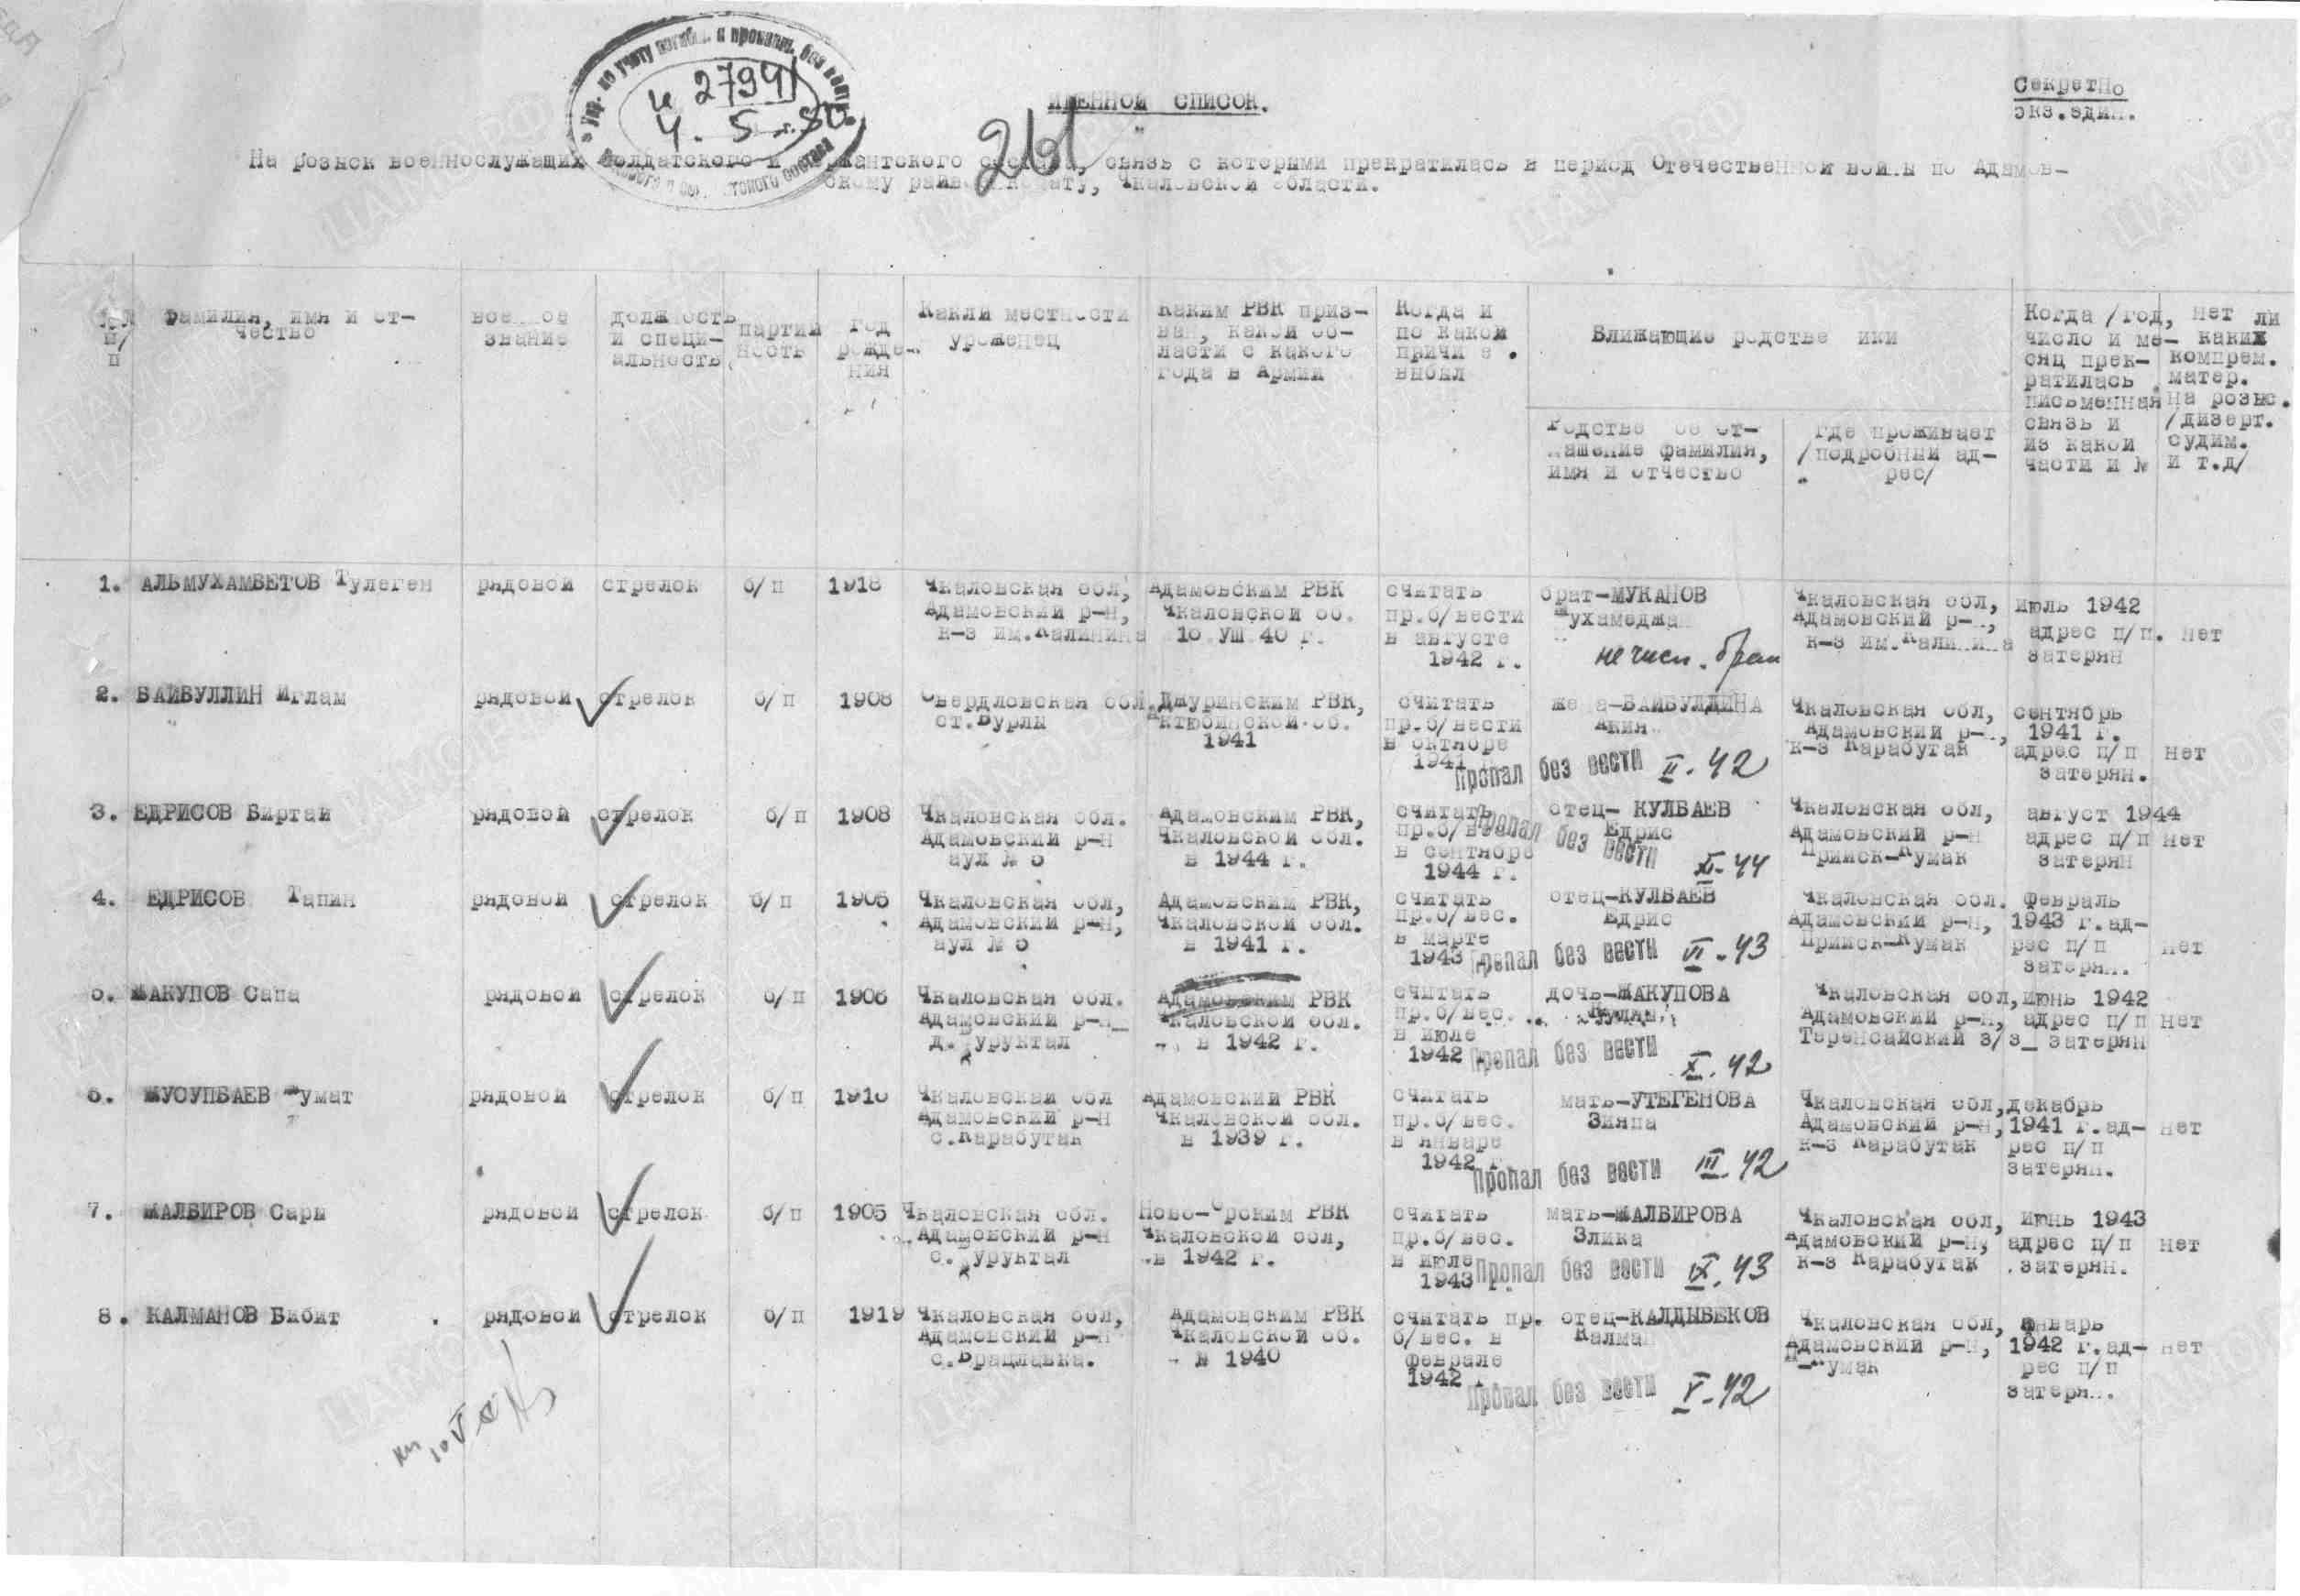 Секретно
экз.един.
и 27941
4. 5 г. 50.
261
ИМЕННОЙ СПИСОК.
На розыск военнослужащих солдатского и сержантского состава, связь с которыми прекратилась в период Отечественной войны по Адамов-
скому райвоенкомату, Чкаловской области.
№№ п/п
Фамилия, имя и от-
чество
военное
звание
должность
и специ-
альность
партий
ность
год
рожде-
ния
Какой местности
уроженец
Каким РВК приз-
ван, какой об-
ласти с какого
года в Армии
Когда и
по какой
причине.
выбыл
Ближающие родственники
Родственное от-
ношение фамилия,
имя и отчество
Где проживает
/подробный ад-
рес/
Когда /год,
число и ме-
сяц прек-
ратилась
письменная
связь и
из какой
части и №
нет ли
каких
компрем.
матер.
на розыс.
/дизерт.
судим.
и т.д/
1. АЛЬМУХАМБЕТОВ Тулеген рядовой стрелок б/п 1918
Чкаловская обл,
Адамовский р-н,
к-з им.Калинина
Адамовским РВК
Чкаловской об.
10 УШ 40 г.
считать
пр.б/вести
в августе
1942 г.
брат-МУКАНОВ
Мухамеджан
не числ. брат
Чкаловская обл,
Адамовский р-н,
к-з им.Калинина
июль 1942
адрес п/п.
затерян
нет
2. БАЙБУЛЛИН Иглам рядовой стрелок б/п 1908
Свердловская обл
ст.Бурлы
Джуринским РВК,
Актюбинской об.
1941
считать
пр.б/вести
в октябре
1941
жена-БАЙБУЛДИНА
Акия
Пропал без вести II. 42
Чкаловская обл,
Адамовский р-н,
к-з Карабутак
сентябрь
1941 г.
адрес п/п
затерян.
нет
3. ЕДРИСОВ Биртай рядовой стрелок б/п 1908
Чкаловская обл.
Адамовский р-н
аул № 5
Адамовским РВК,
Чкаловской обл.
в 1944 г.
считать
пр.б/вес
в сентябре
1944 г.
отец- КУЛБАЕВ
Едрис
Пропал без вести XI-44
Чкаловская обл,
Адамовский р-н
Прииск-Кумак
август 1944
адрес п/п
затерян
нет
4. ЕДРИСОВ Тапин рядовой стрелок б/п 1905
Чкаловская обл,
Адамовский р-н,
аул № 5
Адамовским РВК,
Чкаловской обл.
в 1941 г.
считать
пр.б/вес.
в марте
1943
отец-КУЛБАЕВ
Едрис
Пропал без вести VI-43
Чкаловская обл.
Адамовский р-н,
Прииск-Кумак
февраль
1943 г.ад-
рес п/п
затерян.
нет
5. ЖАКУПОВ Сапа рядовой стрелок б/п 1906
Чкаловская обл.
Адамовский р-н
д. Уруктал
Адамовским РВК
Чкаловской обл.
в 1942 г.
считать
пр.б/вес.
в июле
1942
дочь-ЖАКУПОВА
Пропал без вести X. 42
Чкаловская обл,
Адамовский р-н,
Теренсайский з/з
июнь 1942
адрес п/п
затерян
нет
6. ЖУСУПБАЕВ Жумат рядовой стрелок б/п 1918
Чкаловская обл
Адамовский р-н
с.Карабутак
Адамовский РВК
Чкаловской обл.
в 1939 г.
считать
пр.б/вес.
в январе
1942 г.
мать-УТЕГЕНОВА
Зияпа
Пропал без вести III. 42
Чкаловская обл,
Адамовский р-н,
к-з Карабутак
декабрь
1941 г.ад-
рес п/п
затерян.
нет
7. ЖАЛБИРОВ Сары рядовой стрелок б/п 1905
Чкаловская обл.
Адамовский р-н
с. Уруктал
Ново-Орским РВК
Чкаловской обл,
в 1942 г.
считать
пр.б/вес.
в июле
1943
мать-ЖАЛБИРОВА
Злика
Пропал без вести IX. 43
Чкаловская обл,
Адамовский р-н,
к-з Карабутак
июнь 1943
адрес п/п
затерян.
нет
8. КАЛМАНОВ Бибит рядовой стрелок б/п 1919
Чкаловская обл,
Адамовский р-н
с.Брацлавка.
Адамовским РВК
Чкаловской об.
в 1940
считать пр.
б/вес. в
феврале
1942 г
отец-КАЛДЫБЕКОВ
Калман
Пропал без вести V-42
Чкаловская обл,
Адамовский р-н,
П-Кумак
январь
1942 г.ад-
рес п/п
затерян.
нет